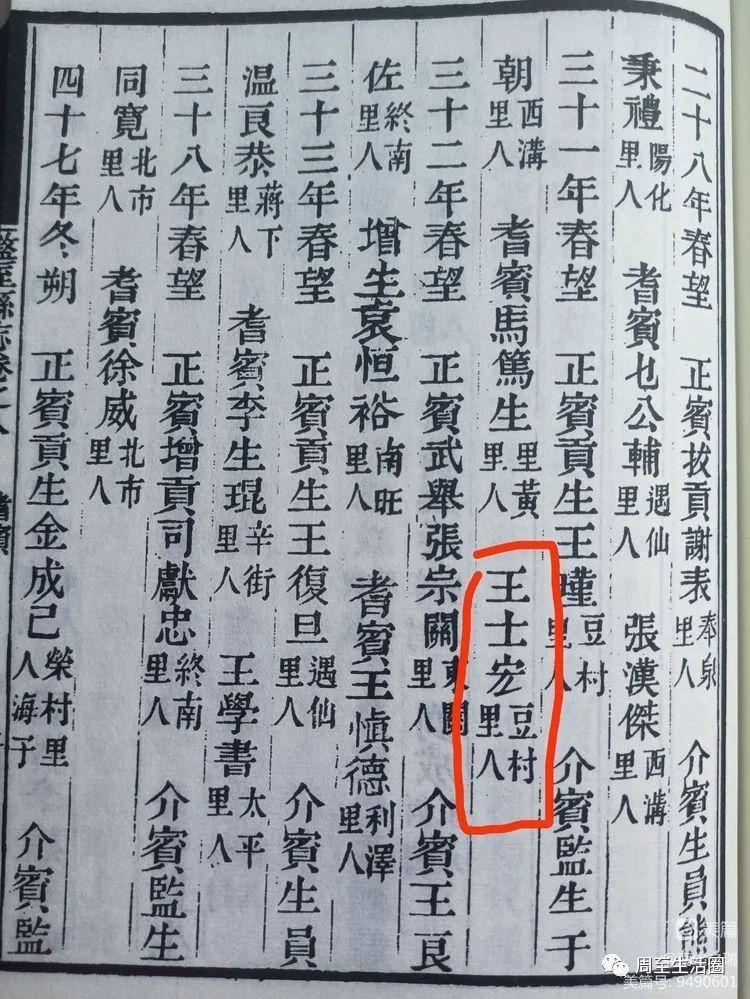 二十八年春望 正賓拔貢謝表奉泉里人 介賓生員熊
秉禮陽化里人 耆賓乜公輔遇仙里人 張漢傑西溝里人
三十一年春望 正賓貢生王 豆村里人 介賓監生于
朝西溝里人 耆賓馬篤生里黃里人 王士宏豆村里人
三十二年春望 正賓武舉張宗關東關里人 介賓王良
佐終南里人 增生袁恒裕南旺里人 耆賓王慎德利澤里人
三十三年春望 正賓貢生王復旦遇仙里人 介賓生員
温良恭蔣下里人 耆賓李生琨辛街里人 王學書太平里人
三十八年春望 正賓增貢司獻忠終南里人 介賓監生
同寬北市里人 耆賓徐威北市里人
四十七年冬朔 正賓貢生金成己榮村里人海子 介賓監
盩厔縣志卷之八 耆賓
美篇
周至生活圈
美篇号: 9490601